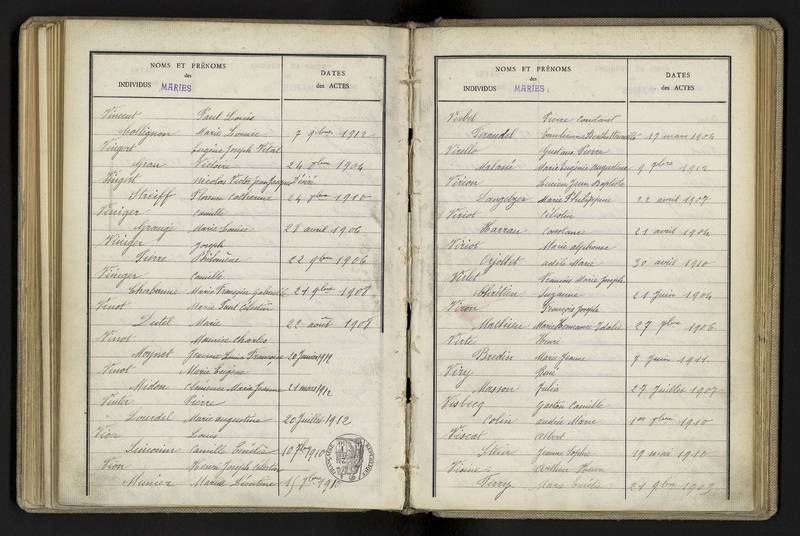 NOMS ET PRÉNOMS
des
INDIVIDUS MARIES
DATES
des ACTES
Vincent Paul Louis
Collignon Marie Louise 7 9bre 1912
Vingert Eugène Joseph Vital
Gran Victoire 24 1904
Vingert Nicolas Victor Jean Jacques Désiré
Streiff Florence Catherine 24 1910
Viniger Camille
Grange Marie Louise 21 avril 1906
Viniger Joseph
Pierre Philomène 22 9bre 1906
Viniger Camille
Marie Françoise Gabrielle 21 9bre 1908
Vinot Marie Paul Célestin
Dutel Marie 22 août 1908
Vinot Maurice Charles
Moynet Jeanne Louise Françoise 20 Janvier 1912
Vinot Marie Eugène
Midon Clémence Marie Jeanne 21 mars 1912
Pierre
Lourdel Marie Augustine 20 Juillet 1912
Vion Louis
Camille Emélie 10 7bre 1910
Vion Henri Joseph Célestin
Munier Maria Léontine 15
NOMS ET PRÉNOMS
des
INDIVIDUS MARIES
DATES
des ACTES
Pierre Constant
17 mars 1904
Virello Gustave Pierre
Malaisé Marie Eugénie Augustine 9 9bre 1912
Virion Lucien Jean Baptiste
Marie Philippine 22 avril 1907
Viriot Célestin
Harran Constance 21 avril 1904
Viriot Marie Alphonse
Adèle Marie 30 avril 1910
François Marie Joseph
Chrétien Suzanne 21 Juin 1904
Viron François Joseph
Mathieu Marie Hermance 27 1906
Virte Henri
Bredin Marie Jeanne 7 Juin 1911
Viry René
Masson Julia 27 Juillet 1907
Visbecq Gaston Camille
Colin Andrée Marie 1er 1910
Viscat Albert
Stein Jeanne Sophie 19 mai 1910
Arthur Henri
Ferry Marie Emélie 21 9bre 1903